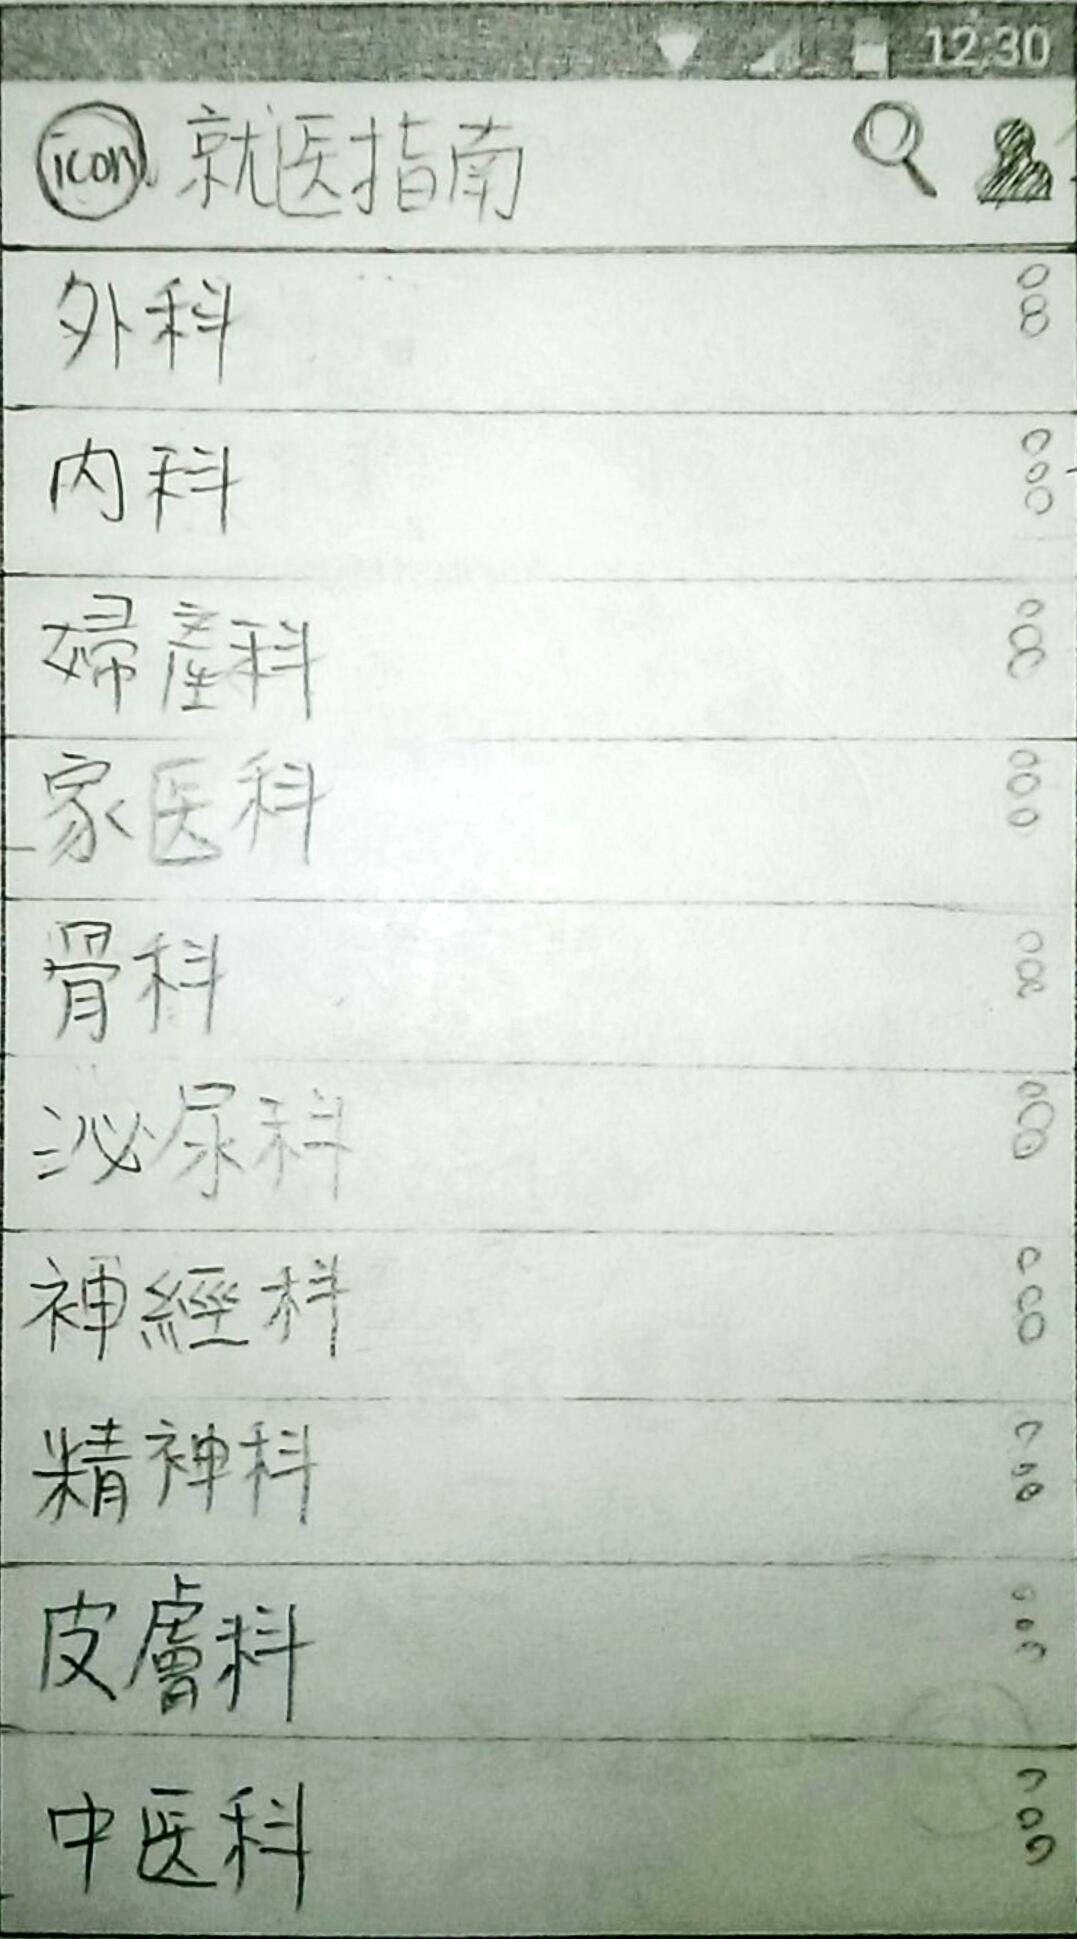 12:30
icon 就医指南
外科
内科
婦產科
家医科
骨科
泌尿科
神經科
精神科
皮膚科
中医科